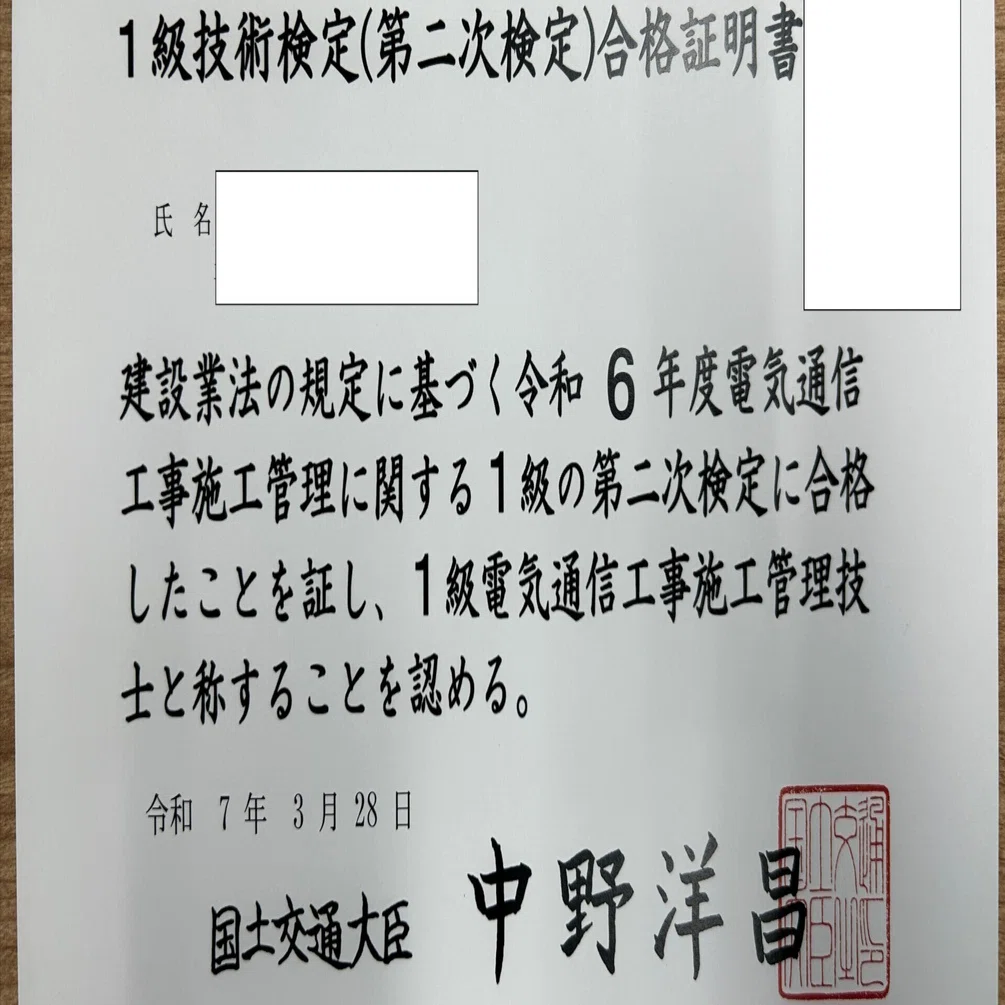 1級技術検定(第二次検定)合格証明書
氏 名
建設業法の規定に基づく令和 6 年度電気通信
工事施工管理に関する1級の第二次検定に合格
したことを証し、1級電気通信工事施工管理技
士と称することを認める。
令和 7 年 3 月 28 日
国土交通大臣 中野洋昌
国土交通大臣之印